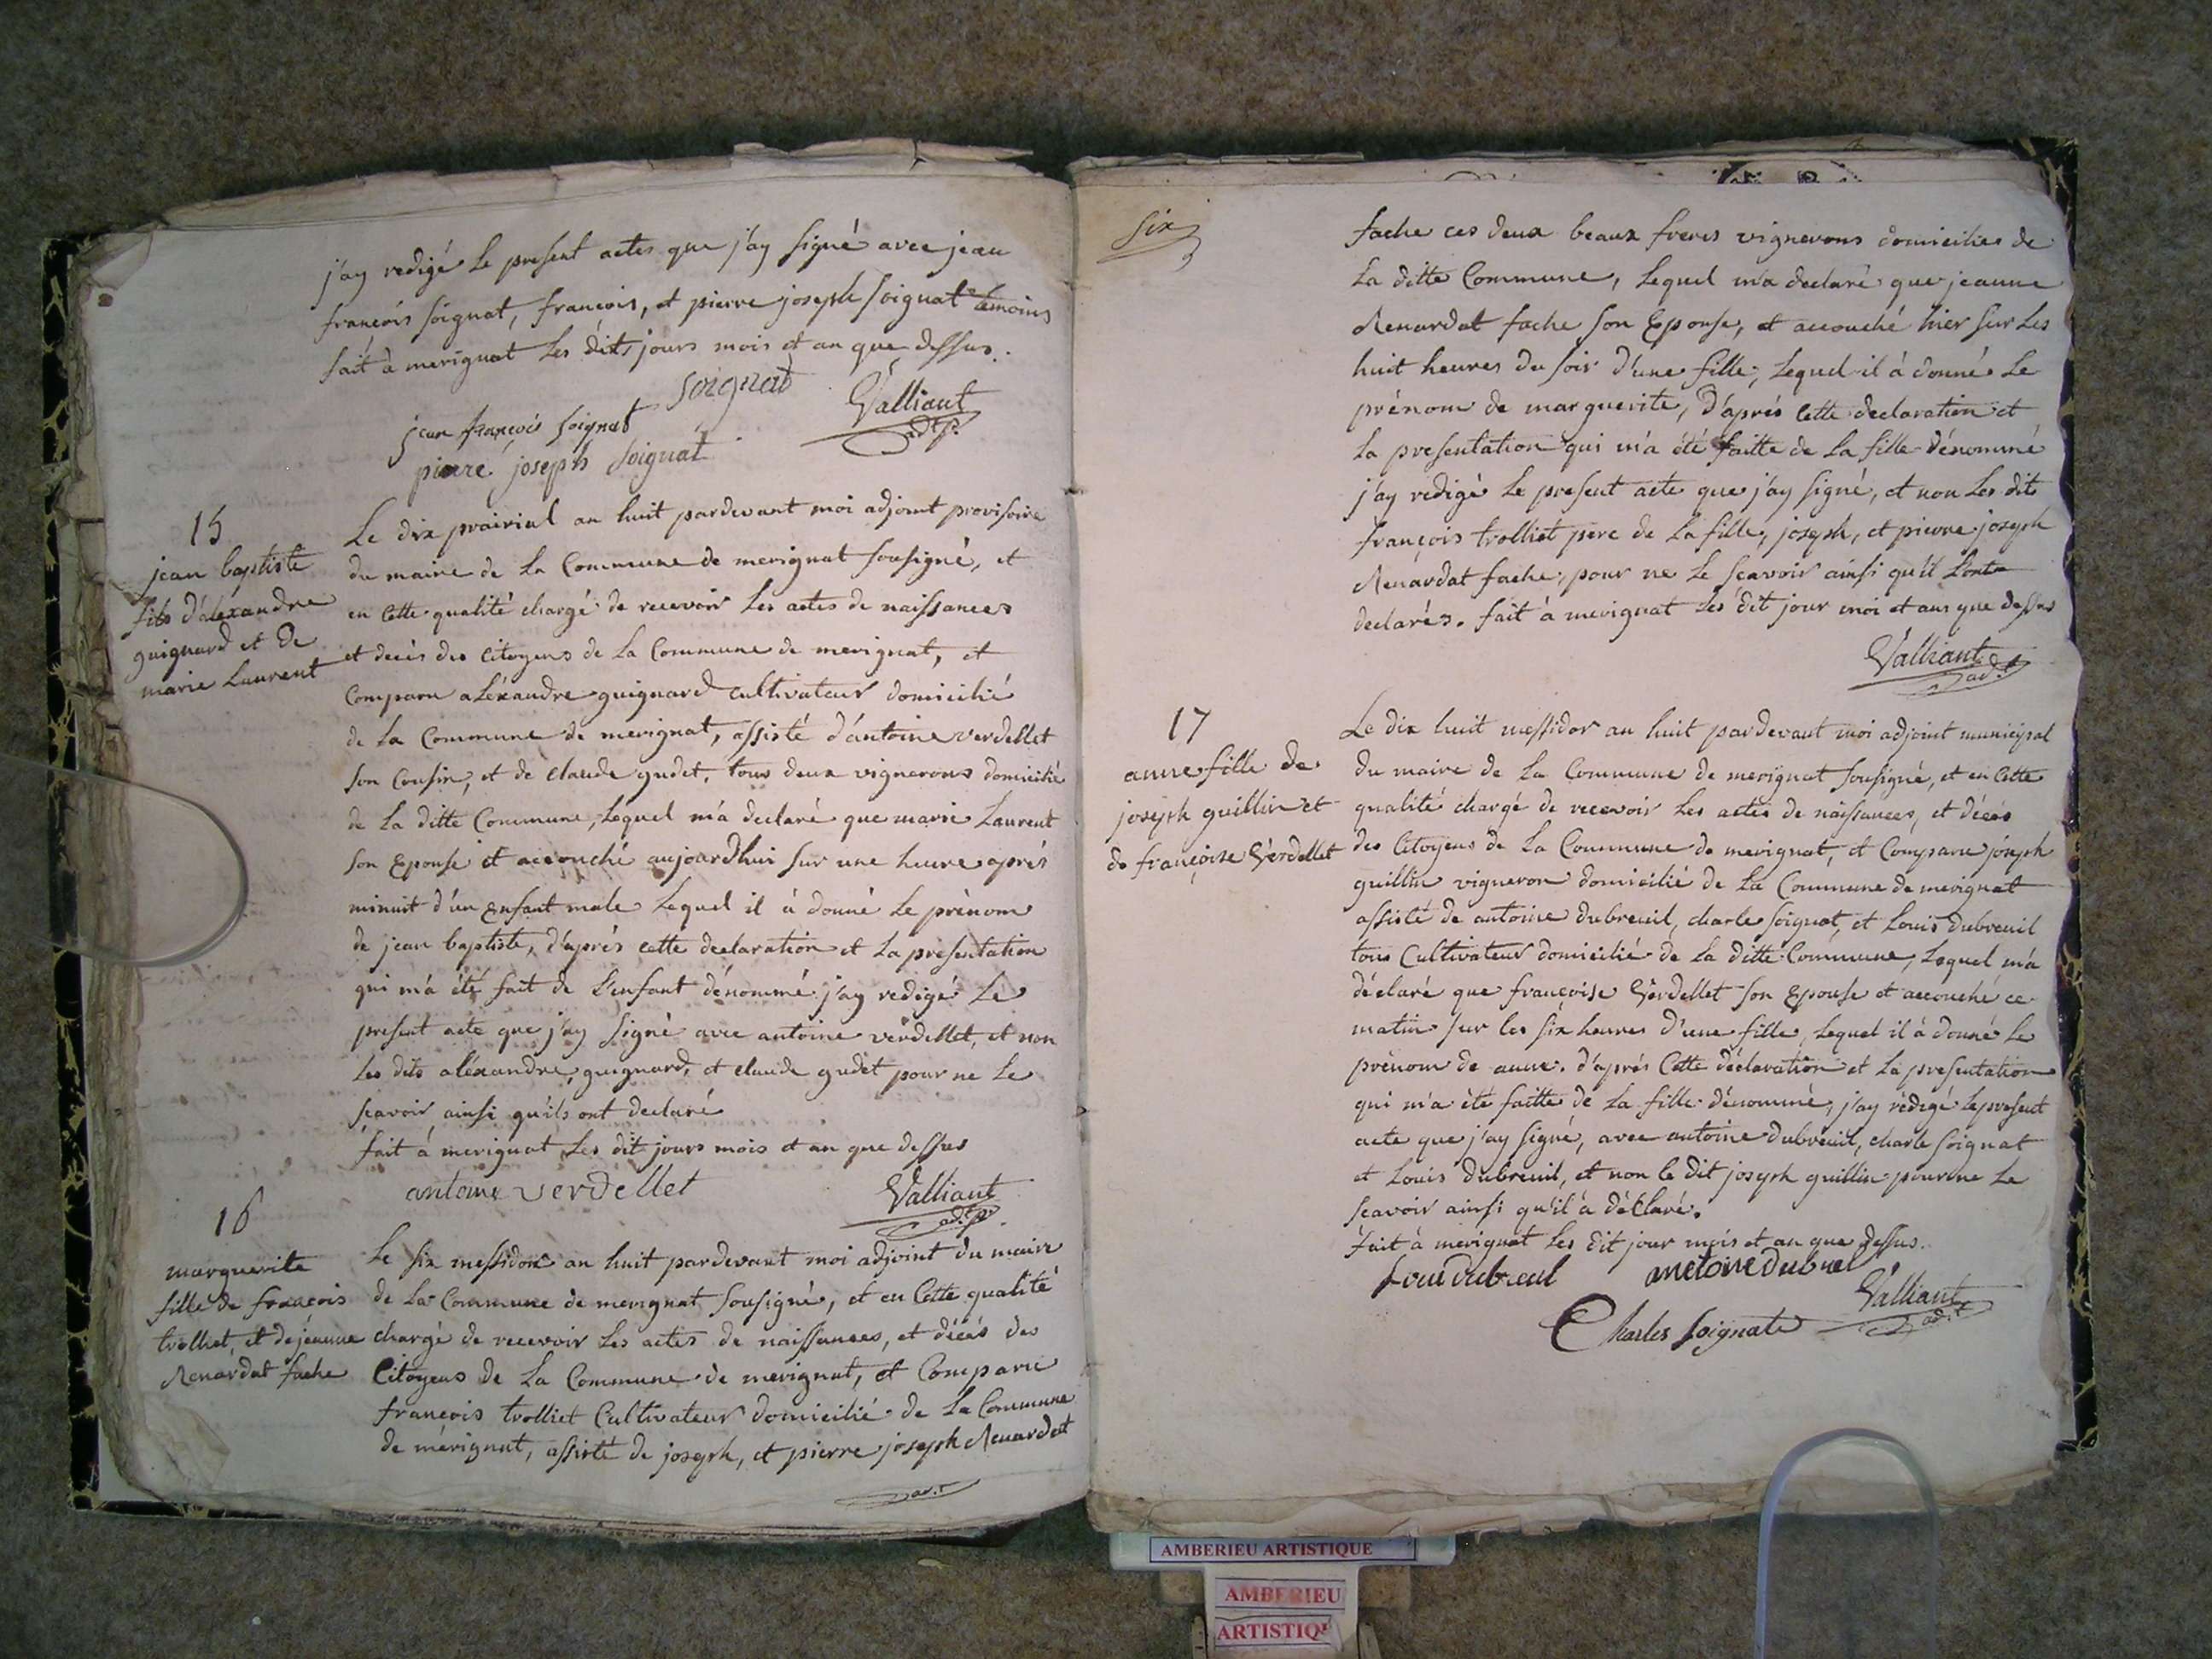 j'ay redigé le present actes que j'ay signé avec jean
françois soignat, françois, et pierre joseph soignat témoins
fait à merignat les dits jours mois et an que dessus.
soignat
jean françois soignat
Valliant
adt p.
pierre joseph soignat
15
jean baptiste
fils d'aléxandre
guignard et de
marie Laurent
Le dix prairial an huit pardevant moi adjoint provisoire
du maire de la Commune de merignat sousigné, et
en Cette qualité chargé de recevoir les actes de naissances
et decès des Citoyens de la Commune de merignat, et
Comparu aléxandre guignard Cultivateur domicilié
de la Commune de merignat, assisté d'antoine verdellet
son Cousin, et de claude gudet, tous deux vignerons domicilié
de la ditte Commune, lequel m'a declaré que marie Laurent
son Epouse et accouché aujourdhui sur une heure après
minuit d'un Enfant male lequel il à donné le prènom
de jean baptiste, d'après cette declaration et la presentation
qui m'a été fait de l'enfant dénommé j'ay redigé le
present acte que j'ay signé avec antoine verdellet, et non
les dits aléxandre guignard, et claude gudet pour ne le
scavoir ainsi qu'ils ont declaré
fait à merignat les dit jours mois et an que dessus
antoine verdellet
Valliant
adt p.
16
marguerite
fille de francois
trolliet, et de jeanne
Renardat fache
Le six messidor an huit pardevant moi adjoint du maire
de la Commune de merignat sousigné, et en Cette qualité
chargé de recevoir les actes de naissances, et décès des
Citoyens de la Commune de merignat, et Comparu
françois trolliet Cultivateur domicilié de la Commune
de mérignat, assisté de joseph, et pierre joseph Renardat
ad.t
six
fache ces deux beaux freres vignerons domicilies de
la ditte Commune, lequel m'a declaré que jeanne
Renardat fache son Epouse, et accouché hier sur les
huit heures du soir d'une fille, lequel il à donné le
prénom de marguerite, d'après cette declaration et
la presentation qui m'a été faitte de la fille dénommé
j'ay redigé le present acte que j'ay signé, et non les dits
françois trolliet pere de la fille, joseph, et pierre joseph
Renardat fache, pour ne le scavoir ainsi qu'il l'ont
declarés. fait à merignat les dit jour moi et ans que dessus
Valliant
ad.t
17
anne fille de
joseph guillin et
de françoise Verdellet
Le dix huit messidor an huit pardevant moi adjoint municipal
du maire de la Commune de merignat sousigné, et en Cette
qualité chargé de recevoir les actes de naissances, et décès
des Citoyens de la Commune de merignat, et Comparu joseph
guillin vigneron domicilié de la Commune de merignat
assisté de antoine dubreuil, charle soignat, et Louis dubreuil
tous Cultivateur domicilié de la ditte Commune, lequel m'a
déclaré que françoise Verdellet son Epouse et accouché ce
matin sur les six heures d'une fille, lequel il à donné le
prènom de anne. d'après Cette déclaration et la presentation
qui m'a été faitte de la fille dénommé, j'ay rédigé le present
acte que j'ay signé, avec antoine dubreuil, charle soignat
et Louis dubreuil, et non le dit joseph guillin pour ne le
scavoir ainsi qu'il à déclaré.
fait à merignat les dit jour mois et an que dessus.
Loui dubreul antoine dubreul
Charles soignat
Valliant
ad.t
AMBERIEU ARTISTIQUE
AMBERIEU
ARTISTIQU